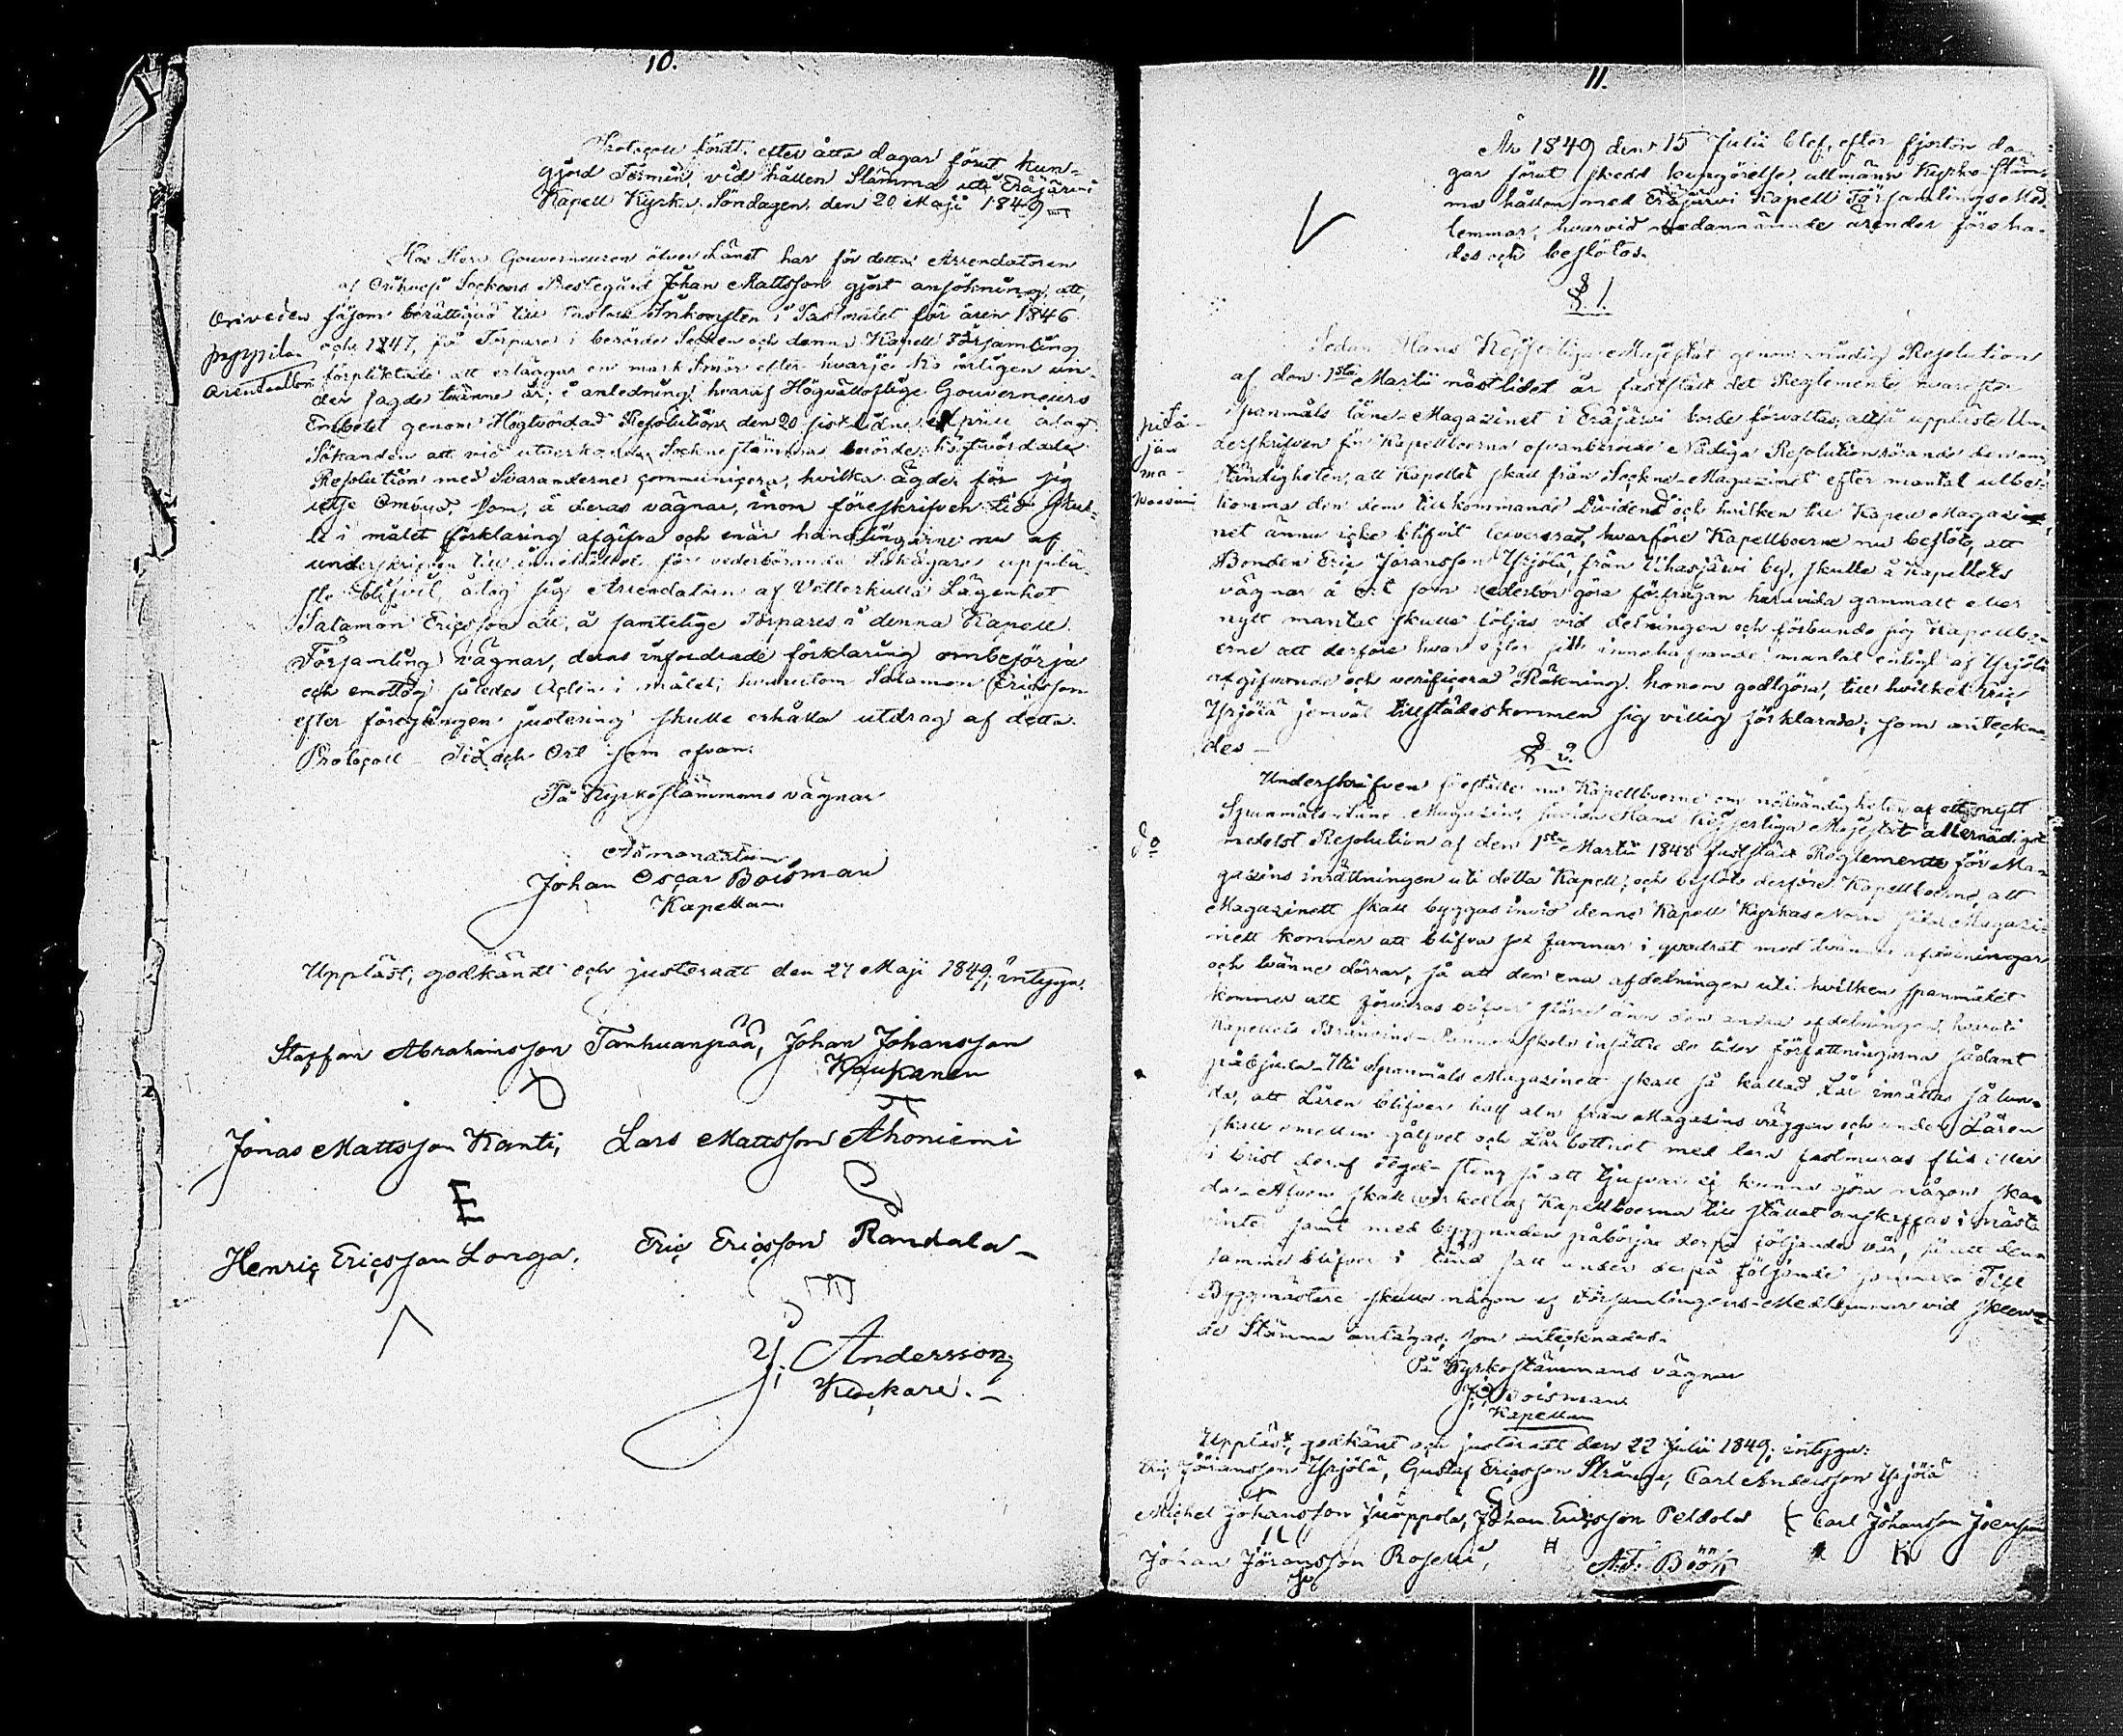 10.
Protocoll fördt efter åtta dagar förut kun-
gjord Termin, vid hållen Stämma uti Eräjärvi
Kapell Kyrka Söndagen den 20 Maji 1849
Hos Herr Gouverneuren öfver Länet har för detta Arrendatoren
af Orihvesi Sockens Prestegård Johan Mattsson gjort ansökning, att,
såsom berättigad till Pastorn Inkomsten i Pastoratet för åren 1846
och 1847, få Torpare i berörde Socken och denna Kapell Församling
förpliktade att erlägga en mark Smör efter hvarje Ko årligen un-
der sagde tvänne år; i anledning hvaraf Högvällofliga Gouverneurs
Embetet genom Högtvördad Resolution den 20 sistledne April ålagt
Sökanden att vid utverkande Sockne stämma berörde högtvördade
Resolution med Svaranderne communicera, hvilka ägde för sig
utse Ombud, som, å deras vägnar, inom föreskrifven tid skul-
le i målet förklaring afgifva och enär handlingarne nu af
underskrifven till innehållet för vederbörande Sakägare upplä-
ste blifvit, åtog sig Arrendatorn af Vetterkulla Lägenhet
Salamon Ericsson att, å samtelige Torpares i denna Kapell
Församling vägnar, deras infordrade förklaring ombesörja
och emottog således Acten i målet; hvarutom Salamon Ericsson
efter föregången justering skulle erhålla utdrag af detta
Protocoll – Tid och Ort som ofvan.
På Kyrkostämmans vägnar
Johan Oscar Boisman
Kapellan
Uppläst, godkändt och justeradt den 27 Maji 1849; intyga:
Staffan Abrahamsson Tanhuanpää, Johan Johansson
Kaukanen
Jonas Mattsson Kanti, Lars Mattsson Ahoniemi
Henric Ericsson Longa. Eric Ericsson Randala –
Y. Andersson
Klockare. –
Oriveden
pappilan
arentaatton
11.
År 1849 den 15 Julii blef, efter fjorton da-
gar förut skedd kungörelse, allmänn Kyrko-stäm-
ma hållen med Eräjärvi Kapell Församlings Med-
lemmar, hvarvid nedannämnde ärender föreha-
des och beslötos.
§. 1.
Sedan Hans Kejserliga Majestät genom nådig Resolution
af den 1sta Martii nästlidet år fastställt det Reglemente hvarefter
Spanmåls låne-Magazinet i Eräjärvi borde förvaltas, altså uppläste Un-
derskrifven för Kapellboerna ofvanberörde Nådiga Resolution rörande den om-
ständigheten, att Kapellet skall från Sockne-Magazinet efter mantal utbe-
komma den dem tillkommande Dividend och hvilken till Kapell Magazi-
net ännu icke blifvit levererad, hvarföre Kapellboerne nu beslöto, att
Bonden Eric Jöransson Yrjölä, från Uhasjärvi by, skulle å Kapellets
vägnar å ort som vederbör göra förfrågan huruvida gammalt eller
nytt mantal skulle följas vid delningen och förbundo sig Kapellbo-
erne att derföre hvar efter sitt innehafvande mantal enligt af Yrjölä
afgifvande och verificerad Räkning honom godtgöra, till hvilket Eric
Yrjölä jemväl tillstädeskommen sig villig förklarade; som anteckna-
des –
§ 2.
Underskrifven föreställde nu Kapellboerne om nödvändigheten af ett nytt
Spanmåls-Låne-Magazin, sedan Hans Kejserliga Majestät allernådigst
medelst Resolution af den 1sta Martii 1848 fastställt Reglemente för Ma-
gazins inrättningen uti detta Kapell; och beslöto derföre Kapellboerne, att
Magazinett skall byggas invid denne Kapell Kyrkas Norra sida Magazi-
nett kommer att blifva sex famnar i quadrat med tvänne afdelningar
och tvänne dörrar, så att den ena afdelningen uti hvilken spanmålet
kommer att förvaras blifver större än den andra afdelningen, hvaruti
Kapellets Brännvins-Pannor skola insättas de tider författningarna sådant
påbjuda. Uti Spanmåls Magazinett skall så kallad Lår inrättas sålun-
da, att Låren blifver half aln från Magasins väggen och under Låren
skall emellan gålfvet och Lår bottnet med lera fastmuras flis eller
i brist deraf Tegel-sten, så att tjufvar ej kunna göra någon ska-
da. Äfven skall virket af Kapellboerna till stället anskaffas i nästa
vinter samt med byggnaden påbörjas derpå följande vår, så att den-
samma blifver i stånd satt under derpå följande sommar. Till
Byggmästare skulle någon af Församlingens-Medlemmar vid skeen-
de Stämma antagas; som antecknades.
På Kyrkostämmans vägnar
J. O. Boisman
Kapellan
Uppläst, godkänt och justeradt den 22 Julii 1849; intyga:
Eric Jöransson Yrjölä, Gustaf Ericsson Strånga, Carl Andersson Yrjölä
Michel Johansson Juoppola, Johan Ericsson Peldola Carl Johansson
Johan Jöransson Roselli,
A.F. Böök
pitä-
jän
ma-
kasiini
do